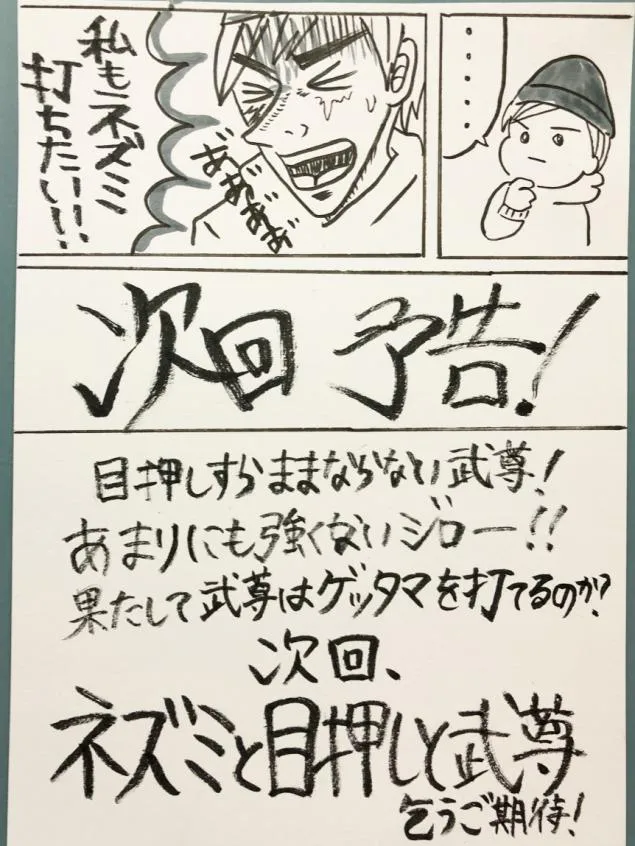 ・・・・・・
私もネズミ
打ちたい!!
あぁあぁあぁ
次回 予告!
目押しすらままならない武尊!
あまりにも強くないジロー!!
果たして武尊はゲッタマを打てるのか?
次回、
ネズミと目押しと武尊
乞うご期待!